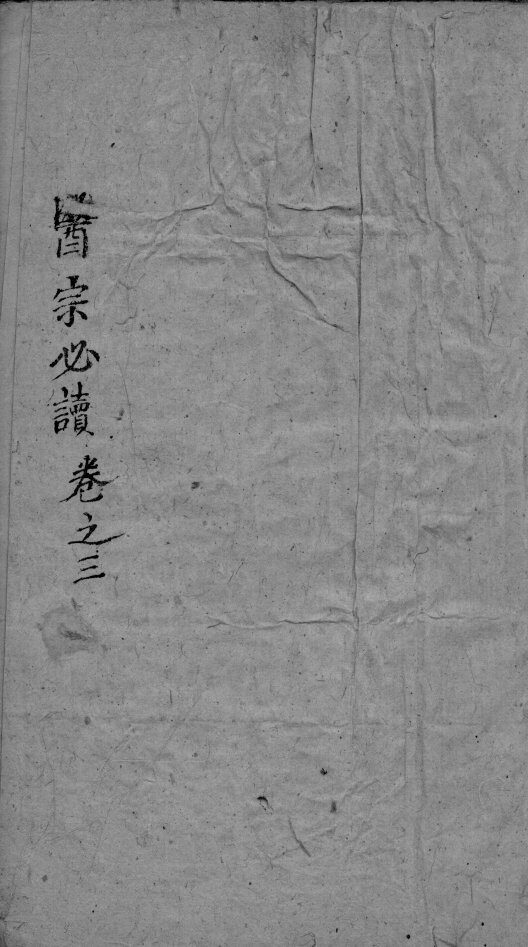 醫宗必讀 卷之三